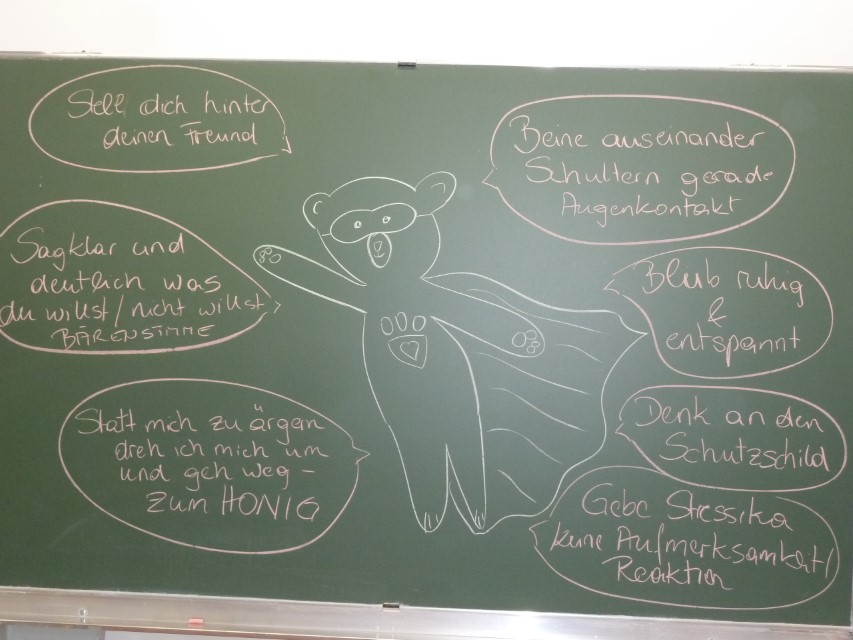 Stell dich hinter
deinen Freund
Sag klar und
deutlich was
du willst / nicht willst
BÄRENSTIMME
Statt mich zu ärgern
dreh ich mich um
und geh weg –
zum HONIG
Beine auseinander
Schultern gerade
Augenkontakt
Bleib ruhig
&
entspannt
Denk an den
Schutzschild
Gebe Stressika
keine Aufmerksamkeit/
Reaktion